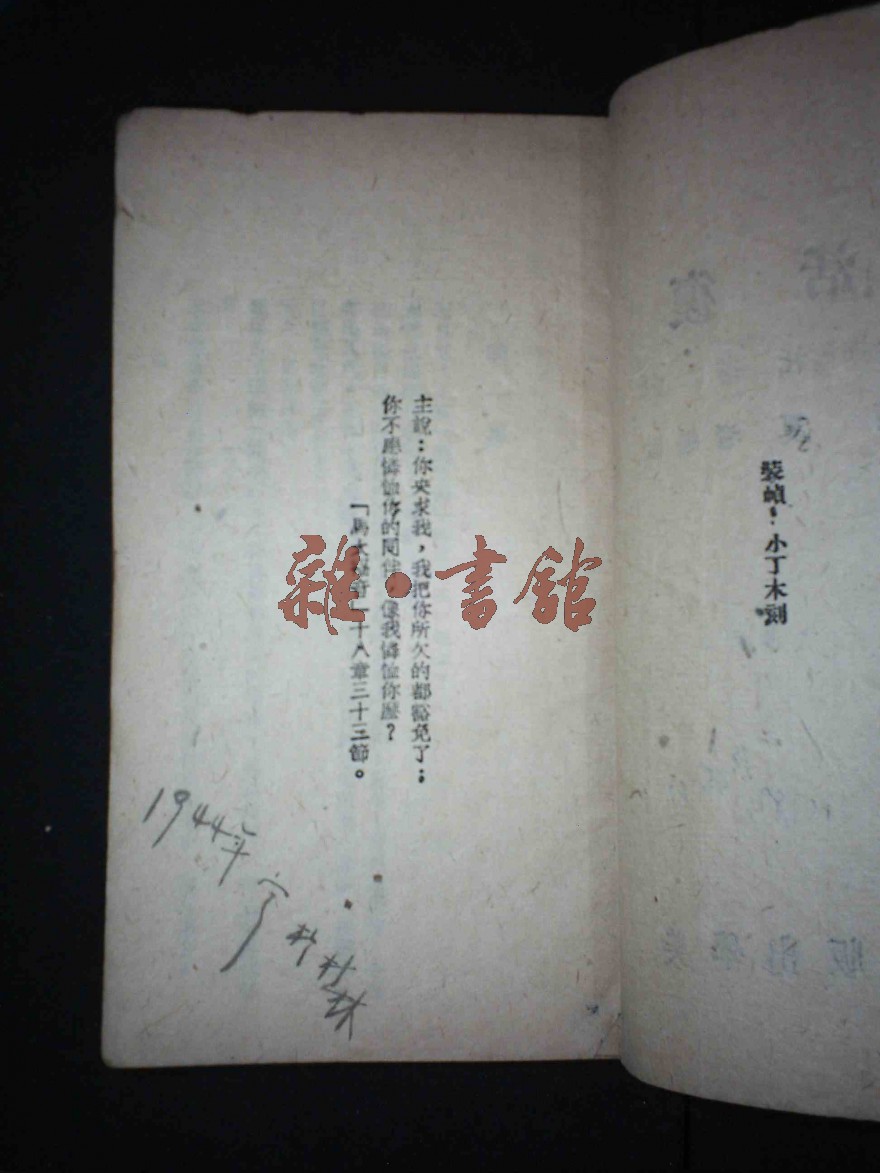 裝幀:小丁木刻
主說:你央求我,我把你所欠的都豁免了;
你不應憐恤你的同伴,像我憐恤你麽?
「馬太福音」十八章三十三節。
1944年
雜·書館